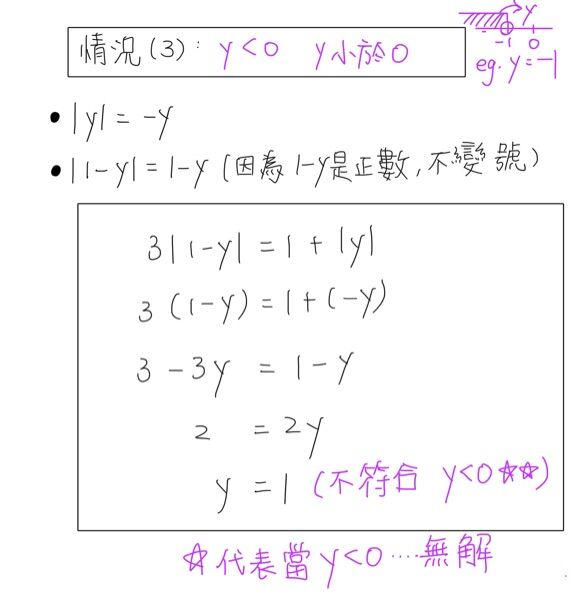 情況(3): y<0 y小於0
y
-1 0
eg. y=-1
• |y| = -y
• |1-y| = 1-y (因為 1-y是正數,不變號)
3|1-y| = 1 + |y|
3 (1-y) = 1+(-y)
3 - 3y = 1 - y
2 = 2y
y = 1 (不符合 y<0 ☆☆)
☆代表當 y<0 .... 無解